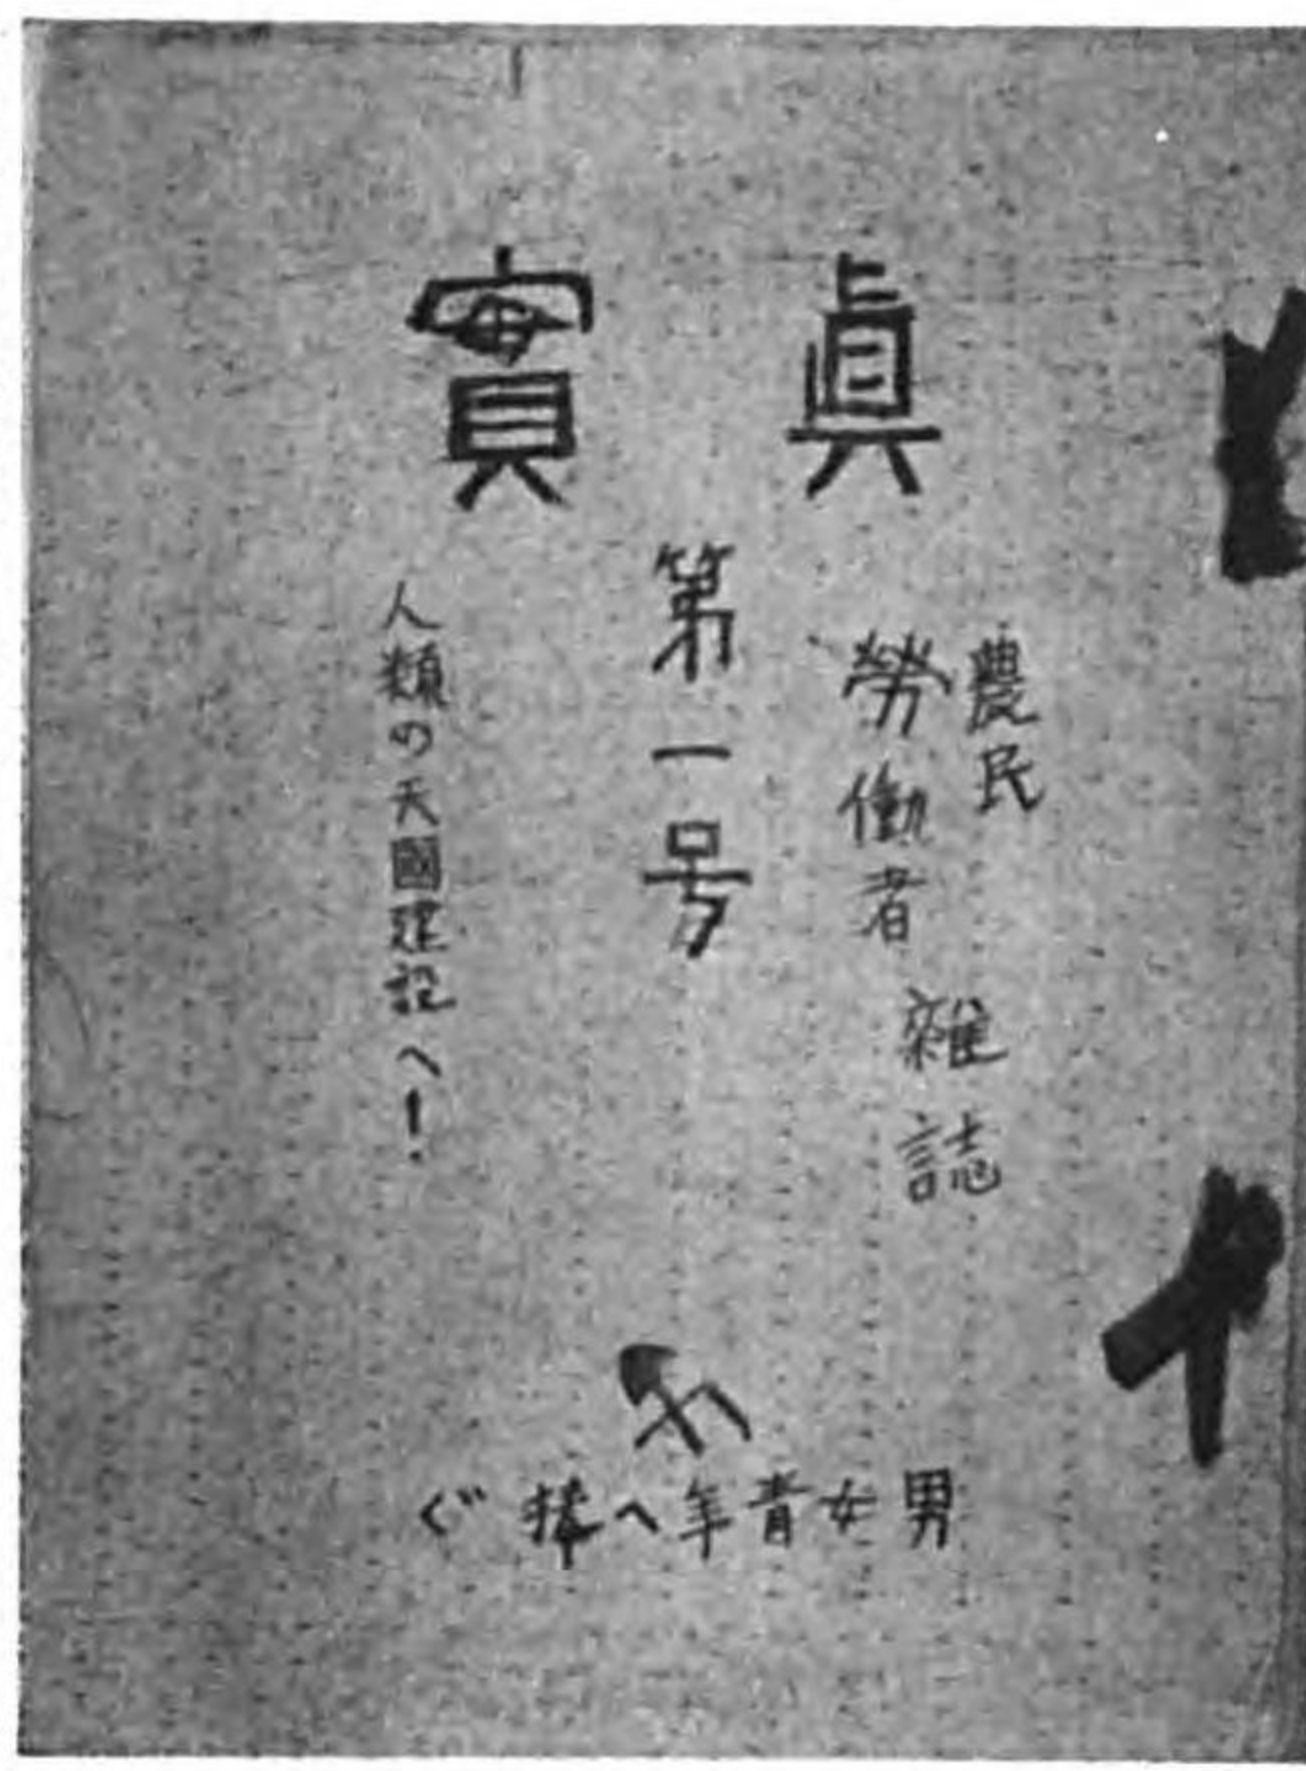 眞實
農民
勞働者
雜誌
第一号
人類の天國建設へ!
男女青年へ捧ぐ